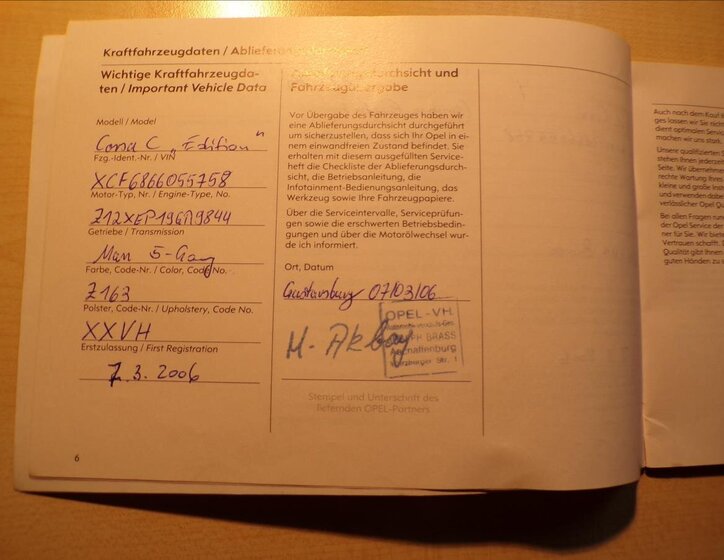 Kraftfahrzeugdaten /
Wichtige Kraftfahrzeugda-
ten / Important Vehicle Data
Modell / Model
Corsa C „Edition“
Fzg.-Ident.-Nr. / VIN
XCF6866055758
Motor-Typ, Nr. / Engine-Type, No.
Z12XEP19GA9844
Getriebe / Transmission
Man 5-Gang
Farbe, Code-Nr. / Color, Code No.
Z163
Polster, Code-Nr. / Upholstery, Code No.
XXVH
Erstzulassung / First Registration
7.3.2006
6
und
Fahrzeugübergabe
Vor Übergabe des Fahrzeuges haben wir
eine Ablieferungsdurchsicht durchgeführt
um sicherzustellen, dass sich Ihr Opel in ei-
nem einwandfreien Zustand befindet. Sie
erhalten mit diesem ausgefüllten Service-
heft die Checkliste der Ablieferungsdurch-
sicht, die Betriebsanleitung, die
Infotainment-Bedienungsanleitung, das
Werkzeug sowie Ihre Fahrzeugpapiere.
Über die Serviceintervalle, Serviceprüfun-
gen sowie die erschwerten Betriebsbedin-
gungen und über die Motorölwechsel wur-
de ich informiert.
Ort, Datum
Gustavsburg 07/03/06
M. Akbay
OPEL-VH
BRASS
Aschaffenburg
Würzburger Str. 1
Stempel und Unterschrift des
liefernden OPEL-Partners
Auch nach dem Kauf
ges lassen wir Sie nicht
dient optimalen Service
machen wir uns stark.
Unsere qualifizierten
stehen Ihnen jederzeit
Seite. Wir übernehmen
rechte Wartung Ihres
kleine und große Inst
und verwenden dabei
verlässlicher Opel Qu
Bei allen Fragen run
der Opel Service der
ner für Sie. Wir biet
Vertrauen schafft.
Qualität gibt Ihnen
guten Händen zu